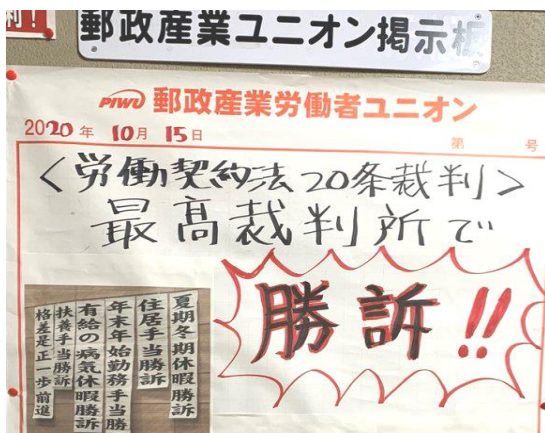 利!
郵政産業ユニオン掲示板
PIWU 郵政産業労働者ユニオン
2020年 10月 15日
第 号
<労働契約法20条裁判>
最高裁判所で
勝訴!!
夏期冬期休暇勝訴
住居手当勝訴
年末年始勤務手当勝
有給の病気休暇勝訴
扶養手当勝訴
格差是正一歩前進